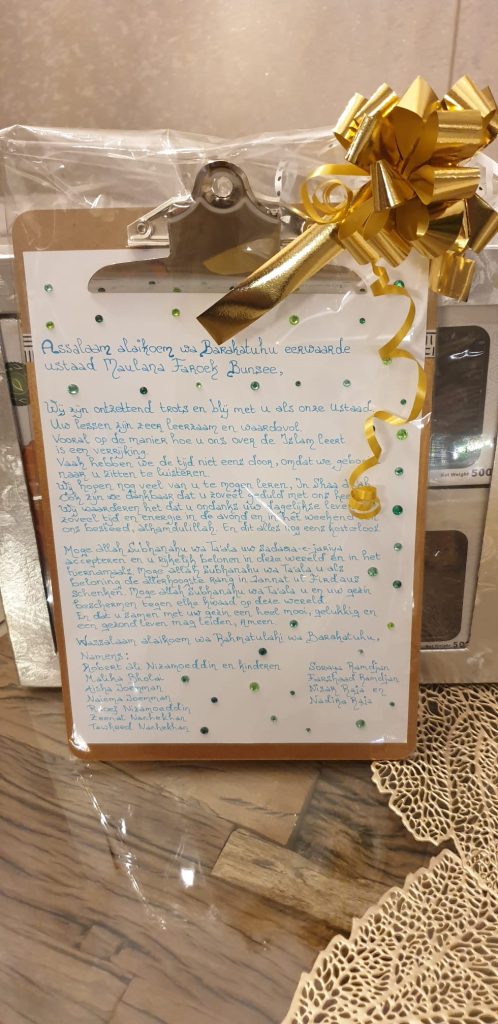 Assalaam alaikoem wa Barakatuhu eerwaarde
ustaad Maulana Faroek Bunsee,
Wij zijn ontzettend trots en blij met u als onze Ustaad.
Uw lessen zijn zeer leerzaam en waardevol.
Vooral op de manier hoe u ons over de Islam leert
is een verrijking.
Vaak hebben we de tijd niet eens door, omdat we geboeid
naar u zitten te luisteren.
Wij hopen nog veel van u te mogen leren, In Shaa Allah
Ook zijn we dankbaar dat u zoveel geduld met ons
Wij waarderen het dat u ondanks uw dagelijkse leven
zoveel tijd en energie in de avond en in het weekend
ons besteed, alhamdulillah. En dit alles nog eens kosteloos.
Moge Allah Subhanahu wa Ta'ala uw sadaqa-e-jariya
accepteren en u rijkelijk belonen in deze wereld en in het
hiernamaals. Moge Allah subhanahu wa Ta'ala u als
beloning de allerhoogste rang in Jannat ul Firdaus
schenken. Moge Allah Subhanahu wa Ta'ala u en uw gezin
beschermen tegen elke kwaad op deze wereld.
En dat u samen met uw gezin een heel mooi, gelukkig en
een gezond leven mag leiden, Ameen.
Wassalaam alaikoem wa Rahmatulahi wa Barakatuhu,
Namens:
Robert Ali Nizamoeddin en kinderen
Malika Pikolai
Aisha Joemman
Naiema Joemman
Nizamoeddin
Zeenat Nanhekhan
Tawheed Nanhekhan
Soraya Ramdjan
Farshaad Ramdjan
Nizar Raja en
Nadira Raja
Net Weight 500